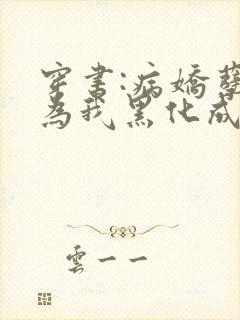 穿書:病嬌
為我黑化成
雲一一